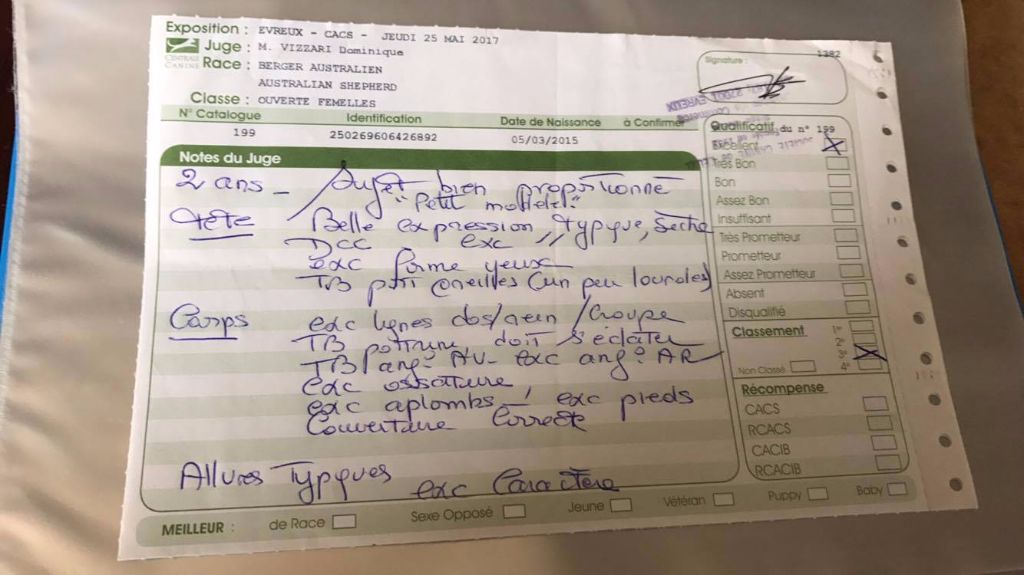 Exposition : EVREUX - CACS - JEUDI 25 MAI 2017
CENTRALE CANINE
Juge : M. VIZZARI Dominique
1382
Race : BERGER AUSTRALIEN
AUSTRALIAN SHEPHERD
Signature :
Classe : OUVERTE FEMELLES
N° Catalogue Identification Date de Naissance à Confirmer
199 250269606426892 05/03/2015
Notes du Juge
2 ans - Sujet bien proportionné
"Petit modèle"
Tête Belle expression, typyque, sèche
DCC exc //
exc forme yeux
TB port oreilles (un peu lourdes)
Corps exc lignes dos/rein/croupe
TB poitrine, doit s'éclater
TB ang° AV - exc ang° AR
exc ossature
exc aplombs - exc pieds
Couverture correcte
Allures Typyques exc Caractère
Qualificatif du n° 199
Excellent
Très Bon
Bon
Assez Bon
Insuffisant
Très Prometteur
Prometteur
Assez Prometteur
Absent
Disqualifié
Classement 1er
2e
3e
Non Classé 4e
Récompense
CACS
RCACS
CACIB
RCACIB
MEILLEUR : de Race Sexe Opposé Jeune Vétéran Puppy Baby